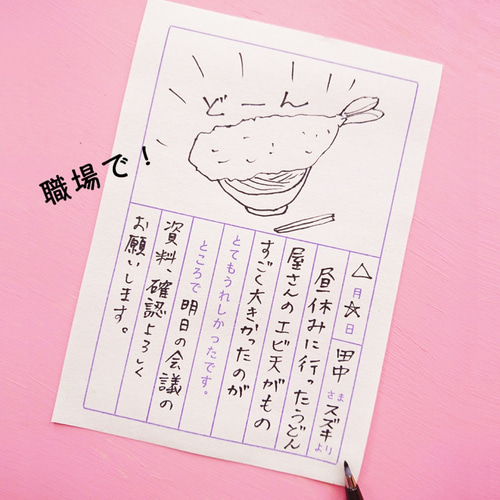 職場で！
どーん
△月☆日
田中さま
スズキより
昼休みに行ったうどん
屋さんのエビ天がもの
すごく大きかったのが
とてもうれしかったです。
ところで明日の会議の
資料、確認よろしく
お願いします。